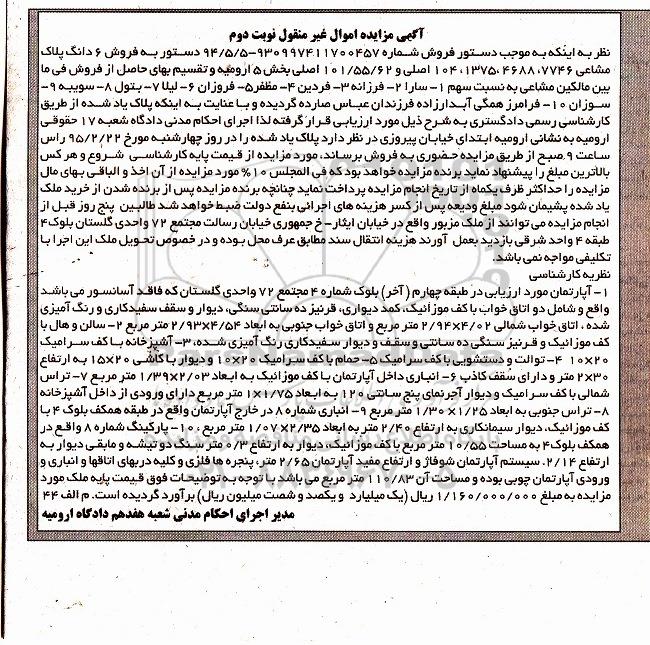 آگهی مزایده اموال غیر منقول نوبت دوم
نظر به اینکه به موجب دستور فروش شماره ۹۳۰۹۹۷۴۱۱۷۰۰۴۵۷-۹۴/۵/۵ دستور به فروش ۶ دانگ پلاک
مشاعی ۷۷۴۶، ۴۶۸۸، ۱۳۷۵، ۱۰۴ اصلی و ۱۰۱/۵۵/۶۲ اصلی بخش ۵ ارومیه و تقسیم بهای حاصل از فروش فی ما
بین مالکین مشاعی به نسبت سهم ۱- سارا ۲- فرزانه ۳- فردین ۴- مظفر ۵- فروزان ۶- لیلا ۷- بتول ۸- سویبه ۹-
سوزان ۱۰- فرامرز همگی آبدارزاده فرزندان عباس صادره گردیده و با عنایت به اینکه پلاک یاد شده از طریق
کارشناسی رسمی دادگستری به شرح ذیل مورد ارزیابی قرار گرفته لذا اجرای احکام مدنی دادگاه شعبه ۱۷ حقوقی
ارومیه به نشانی ارومیه ابتدای خیابان پیروزی در نظر دارد پلاک یاد شده را در روز چهارشنبه مورخ ۹۵/۲/۲۲ راس
ساعت ۹ صبح از طریق مزایده حضوری به فروش برساند، مورد مزایده از قیمت پایه کارشناسی شروع و هر کس
بالاترین مبلغ را پیشنهاد نماید برنده مزایده خواهد بود که فی المجلس ۱۰% مورد مزایده از آن اخذ و الباقی بهای مال
مزایده را حداکثر ظرف یکماه از تاریخ انجام مزایده پرداخت نماید چنانچه برنده مزایده پس از برنده شدن از خرید ملک
یاد شده پشیمان شود مبلغ ودیعه پس از کسر هزینه های اجرائی بنفع دولت ضبط خواهد شد طالبین پنج روز قبل از
انجام مزایده می توانند از ملک مزبور واقع در خیابان ایثار-خ جمهوری خیابان رسالت مجتمع ۷۲ واحدی گلستان بلوک ۴
طبقه ۴ واحد شرقی بازدید بعمل آورند هزینه انتقال سند مطابق عرف محل بوده و در خصوص تحویل ملک این اجرا با
تکلیفی مواجه نمی باشد.
نظریه کارشناسی
۱- آپارتمان مورد ارزیابی در طبقه چهارم (آخر) بلوک شماره ۴ مجتمع ۷۲ واحدی گلستان که فاقد آسانسور می باشد
واقع و شامل دو اتاق خواب با کف موزائیک، کمد دیواری، قرنیز ده سانتی سنگی، دیوار و سقف سفیدکاری و رنگ آمیزی
شده، اتاق خواب شمالی ۴/۰۲×۲/۹۴ متر مربع و اتاق خواب جنوبی به ابعاد ۴/۵۴×۲/۹۳ متر مربع ۲- سالن و هال با
کف موزائیک و قرنیز سنگی ده سانتی و سقف و دیوار سفیدکاری رنگ آمیزی شده، ۳- آشپزخانه با کف سرامیک
۲۰×۱۰ ۴- توالت و دستشویی با کف سرامیک ۵- حمام با کف سرامیک ۲۰×۱۰ و دیوار با کاشی ۲۰×۱۵ به ارتفاع
۲×۳۰ متر و دارای سقف کاذب ۶- انباری داخل آپارتمان با کف موزائیک به ابعاد ۲/۰۳×۱/۳۹ متر مربع ۷- تراس
شمالی با کف سرامیک و دیوار آجرنمای پنج سانتی ۱۲۰ به ابعاد ۱/۷۵×۱ متر مربع دارای ورودی از داخل آشپزخانه
۸- تراس جنوبی به ابعاد ۱/۲۵×۱/۳۰ متر مربع ۹- انباری شماره ۸ در خارج آپارتمان واقع در طبقه همکف بلوک ۴ با
کف موزائیک، دیوار سیمانکاری به ارتفاع ۲/۴۰ متر به ابعاد ۲/۳۵×۱/۰۷ متر مربع، ۱۰- پارکینگ شماره ۸ واقع در
همکف بلوک ۴ به مساحت ۱۰/۵۵ متر مربع با کف موزائیک، دیوار به ارتفاع ۰/۳ متر سنگ دو تیشه و مابقی دیوار به
ارتفاع ۲/۱۴. سیستم آپارتمان شوفاژ و ارتفاع مفید آپارتمان ۲/۶۵ متر، پنجره ها فلزی و کلیه دربهای اتاقها و انباری و
ورودی آپارتمان چوبی بوده و مساحت آن ۱۱۰/۸۳ متر مربع می باشد با توجه به توضیحات فوق قیمت پایه ملک مورد
مزایده به مبلغ ۱/۱۶۰/۰۰۰/۰۰۰ ریال (یک میلیارد و یکصد و شصت میلیون ریال) برآورد گردیده است. م الف ۴۴
مدیر اجرای احکام مدنی شعبه هفدهم دادگاه ارومیه